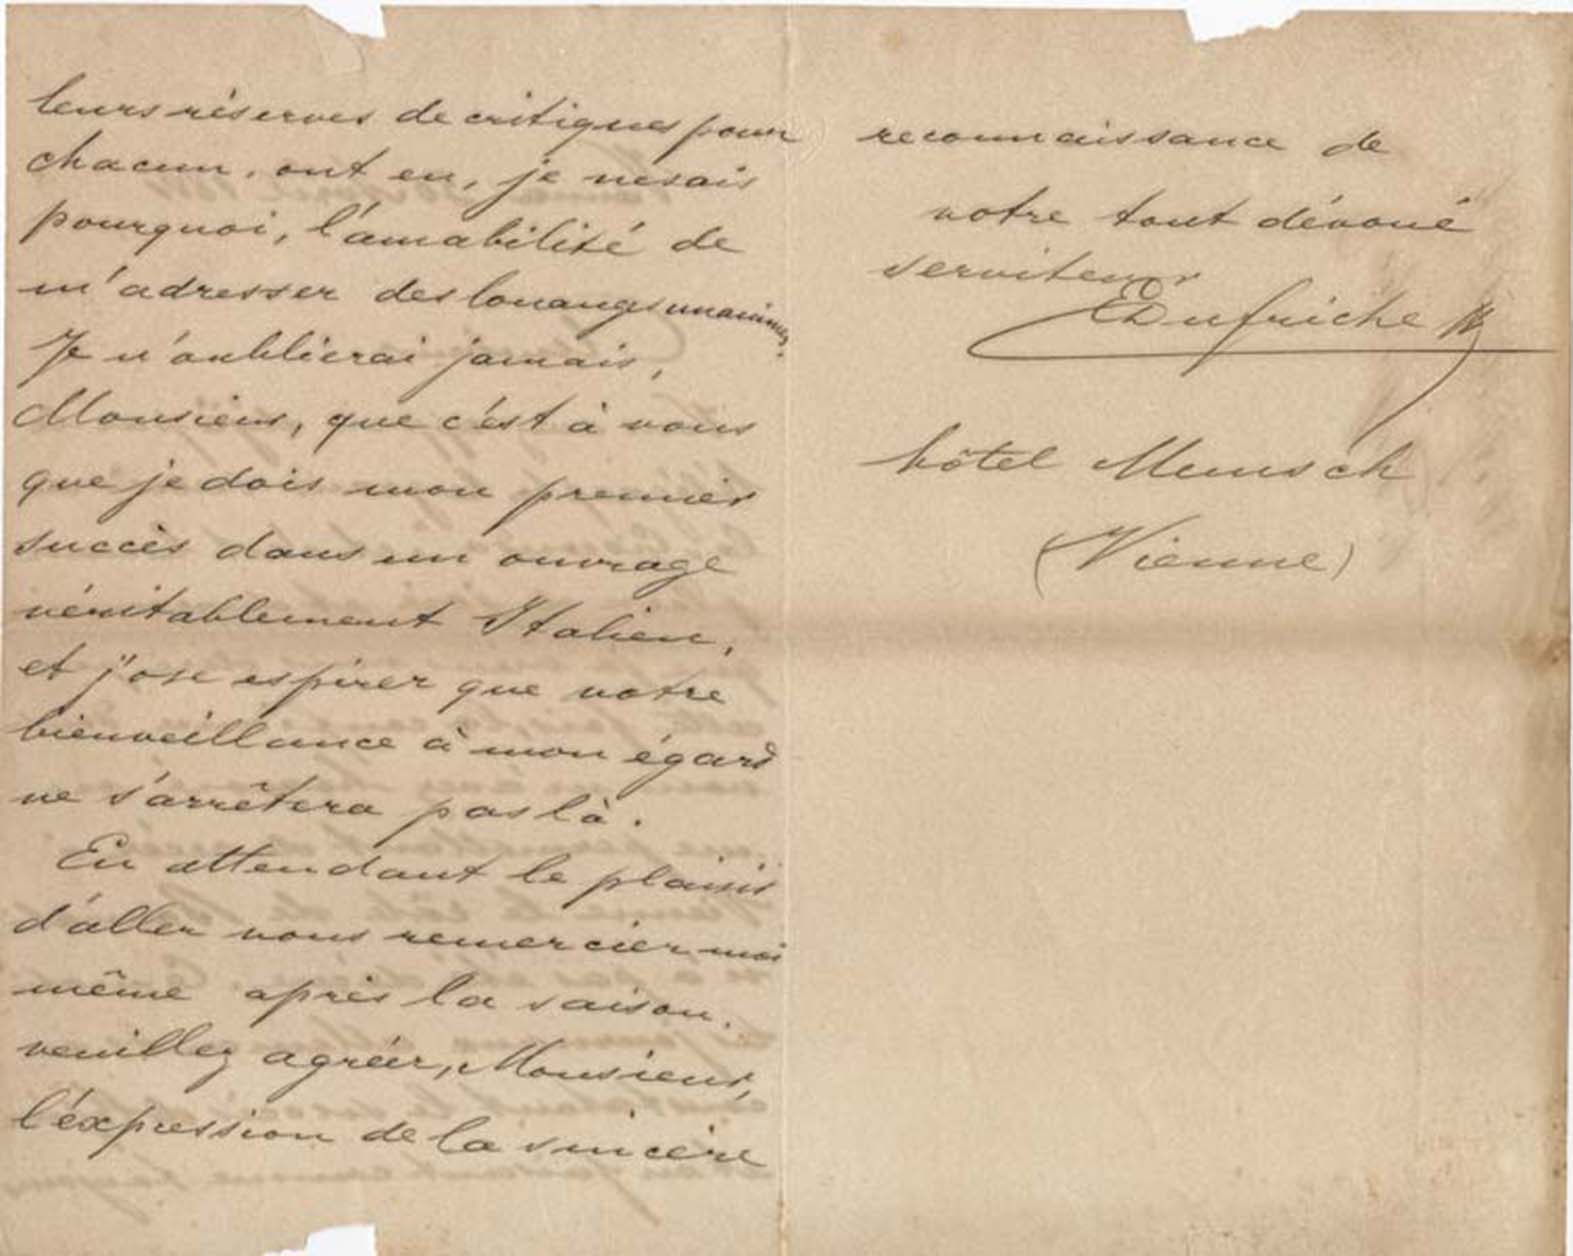 leurs réserves de critiques pour
chacun, ont eu, je ne sais
pourquoi, l'amabilité de
m'adresser des louanges unanimes.
Je n'oublierai jamais,
Monsieur, que c'est à vous
que je dois mon premier
succès dans un ouvrage
véritablement Italien,
et j'ose espérer que votre
bienveillance à mon égard
ne s'arrêtera pas là.
En attendant le plaisir
d'aller vous remercier moi
même après la saison.
veuillez agréer, Monsieur,
l'éxpression de la sincère
reconnaissance de
votre tout dévoué
serviteur
EDufriche
hôtel Munsch
(Vienne)